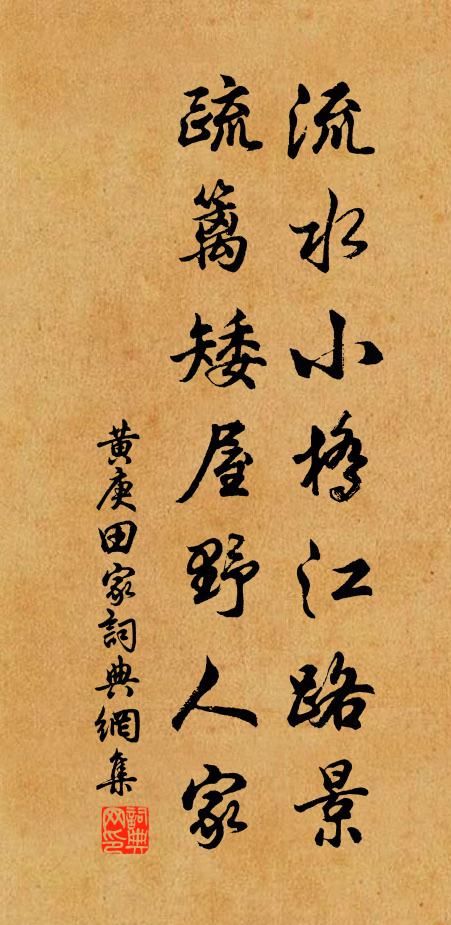 流水小橋江路景
疏篱矮屋野人家
黄庚田家詞典網集
詞典网印